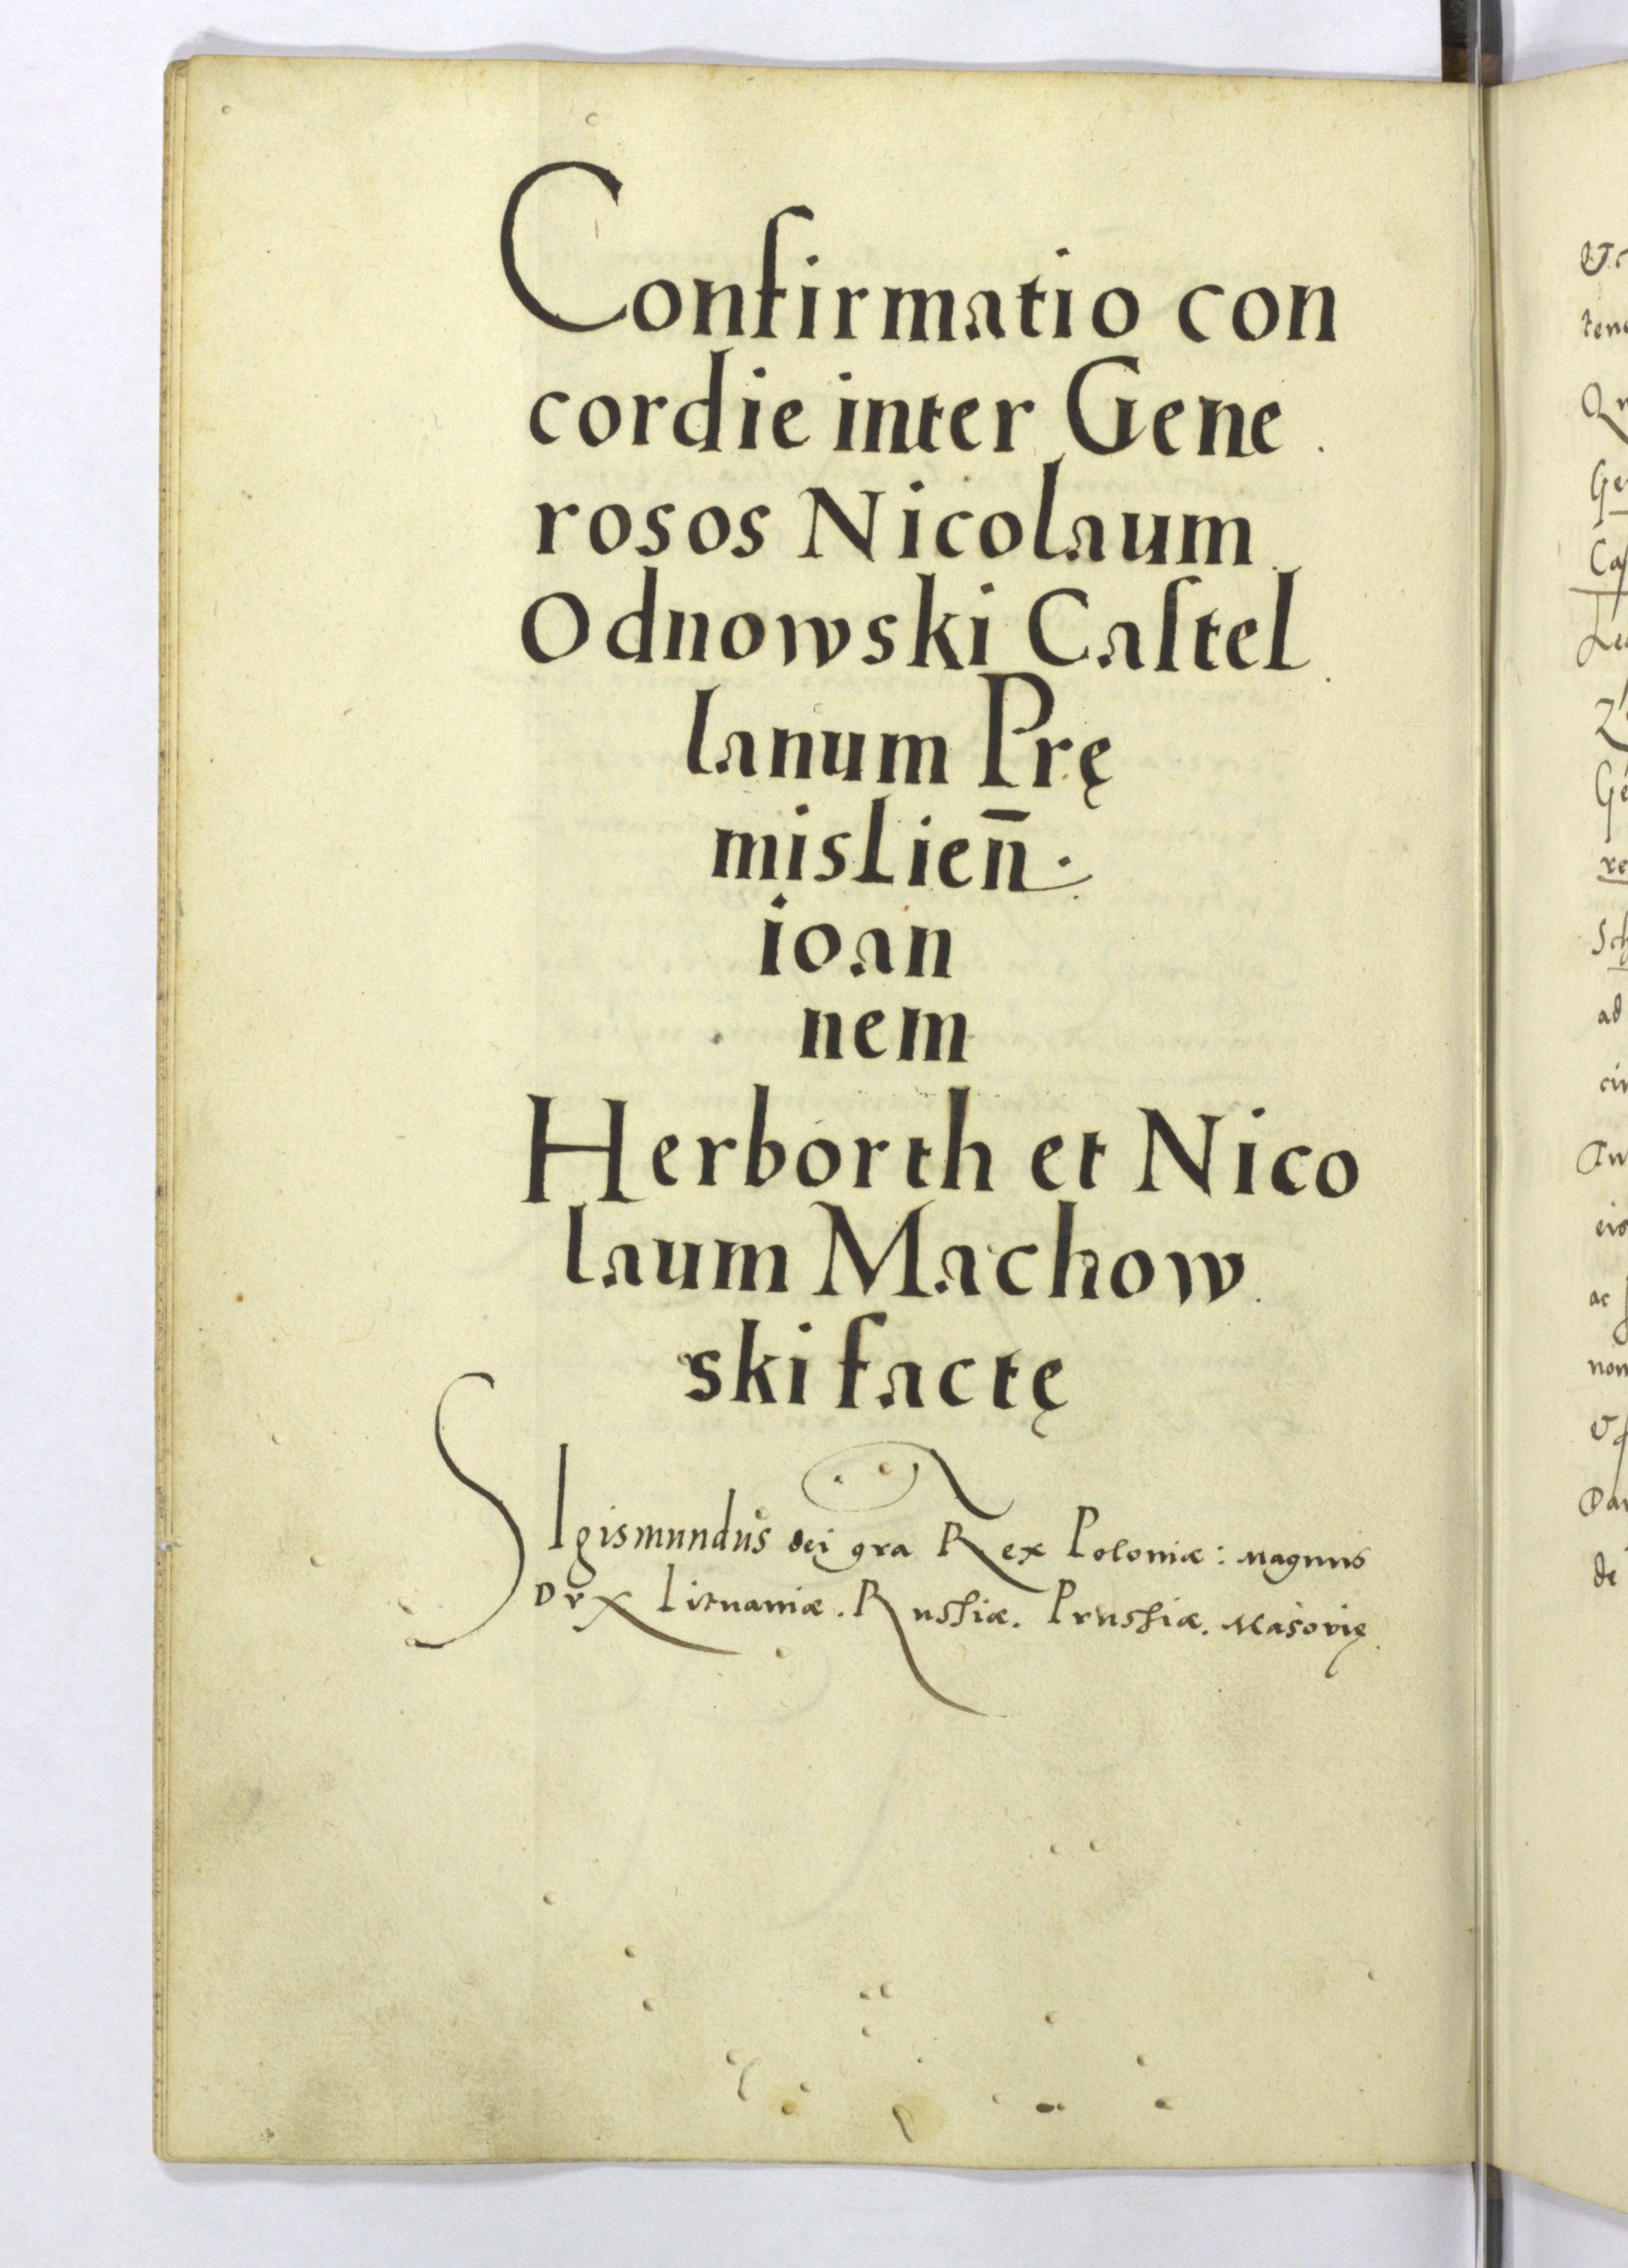 Confirmatio con
cordie inter Gene
rosos Nicolaum
Odnowski Caſtel
lanum Prę
mislien̄.
ioan
nem
Herborth et Nico
laum Machow
ski factę
SIgismundus dei gra Rex Poloniæ: Magnus
Dux Lituaniæ. Rusſiæ. Prusſiæ. Masovię